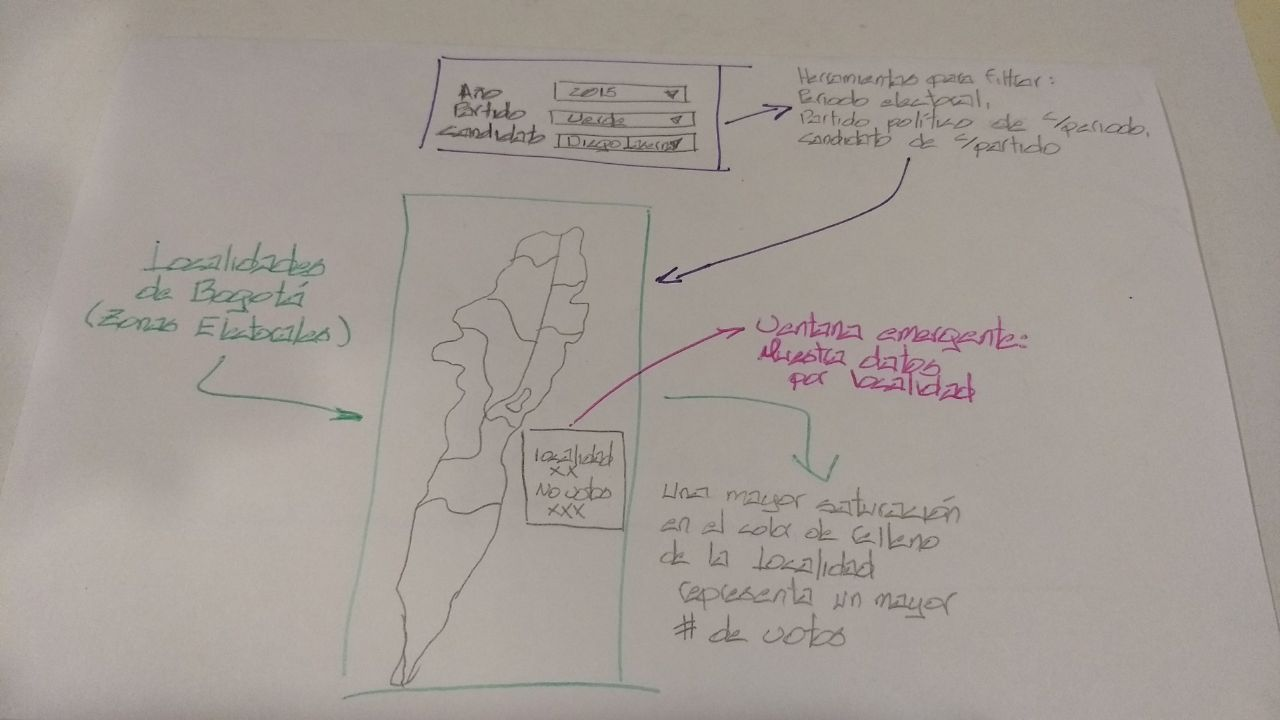 Año 2015
Partido Verde
Candidato Diego
Herramientas para filtrar:
Periodo electoral,
Partido político de c/periodo,
candidato de c/partido
Localidades
de Bogotá
(Zonas Eletocales)
Ventana emergente:
Muestra datos
por localidad
Localidad
XX
No votos
XXX
Una mayor saturación
en el color de relleno
de la Localidad
representa un mayor
# de votos